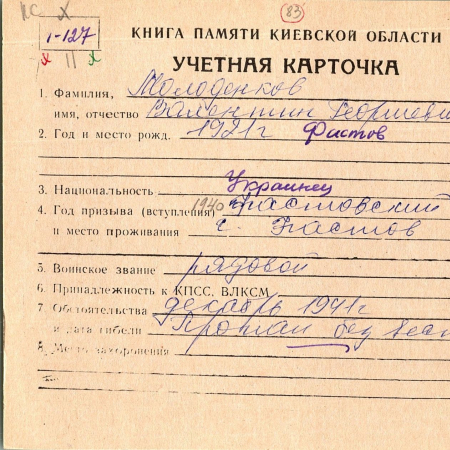 83
1-127
КНИГА ПАМЯТИ КИЕВСКОЙ ОБЛАСТИ
УЧЕТНАЯ КАРТОЧКА
1. Фамилия, Молоденков
имя, отчество Валентин Георгиеви
2. Год и место рожд. 1921г Фастов
3. Национальность Украинец
4. Год призыва (вступления) 1940 Фастовский
и место проживания г. Фастов
5. Воинское звание рядовой
6. Принадлежность к КПСС, ВЛКСМ
7. Обстоятельства декабрь 1941г
и дата гибели Пропал без вест
8. Место захоронения